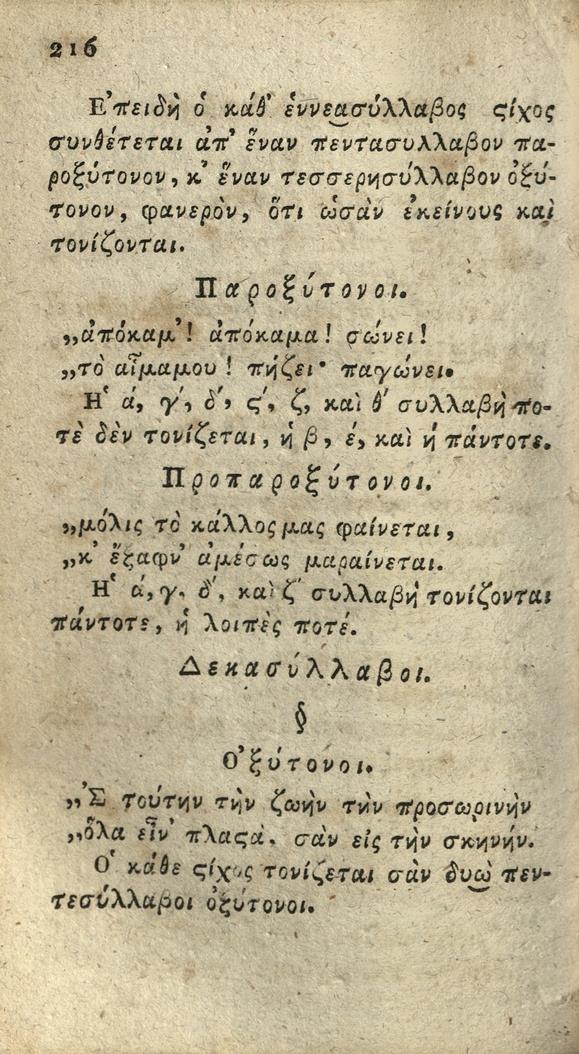 216
Ε᾿πειδὴ ὁ κάθ᾿ ἐννεασύλλαβος ϛίχος
συνθέτεται ἀπ᾿ ἕναν πεντασυλλαβον πα-
ροξύτονον, κ᾿ ἕναν τεσσερησύλλαβον ὀξύ-
τονον, φανερὸν, ὅτι ὡσὰν ἐκείνους καὶ
τονίζονται.
Παροξύτονοι.
„ἀπόκαμ᾿! ἀπόκαμα! σώνει!
„τὸ αἷμαμου! πήζει· παγώνει.
Η῾ ά, γ´, δ´, ϛ´, ζ, καὶ θ´ συλλαβὴ πο-
τὲ δὲν τονίζεται, ἡ β, έ, καὶ ή πάντοτε.
Προπαροξύτονοι.
„μόλις τὸ κάλλος μας φαίνεται,
„κ᾿ ἔξαφν᾿ ἀμέσως μαραίνεται.
Η῾ ά, γ. δ´, καὶ ζ´ συλλαβὴ τονίζονται
πάντοτε, ἡ λοιπὲς ποτέ.
Δεκασύλλαβοι.
§
Ο᾿ξύτονοι.
„᾿Σ τούτην τὴν ζωὴν τὴν προσωρινὴν
„ὅλα εἶν᾿ πλαϛὰ. σὰν εἰς τὴν σκηνήν.
Ο῾ κάθε ϛίχος τονίζεται σὰν δυὼ πεν-
τεσύλλαβοι ὀξύτονοι.